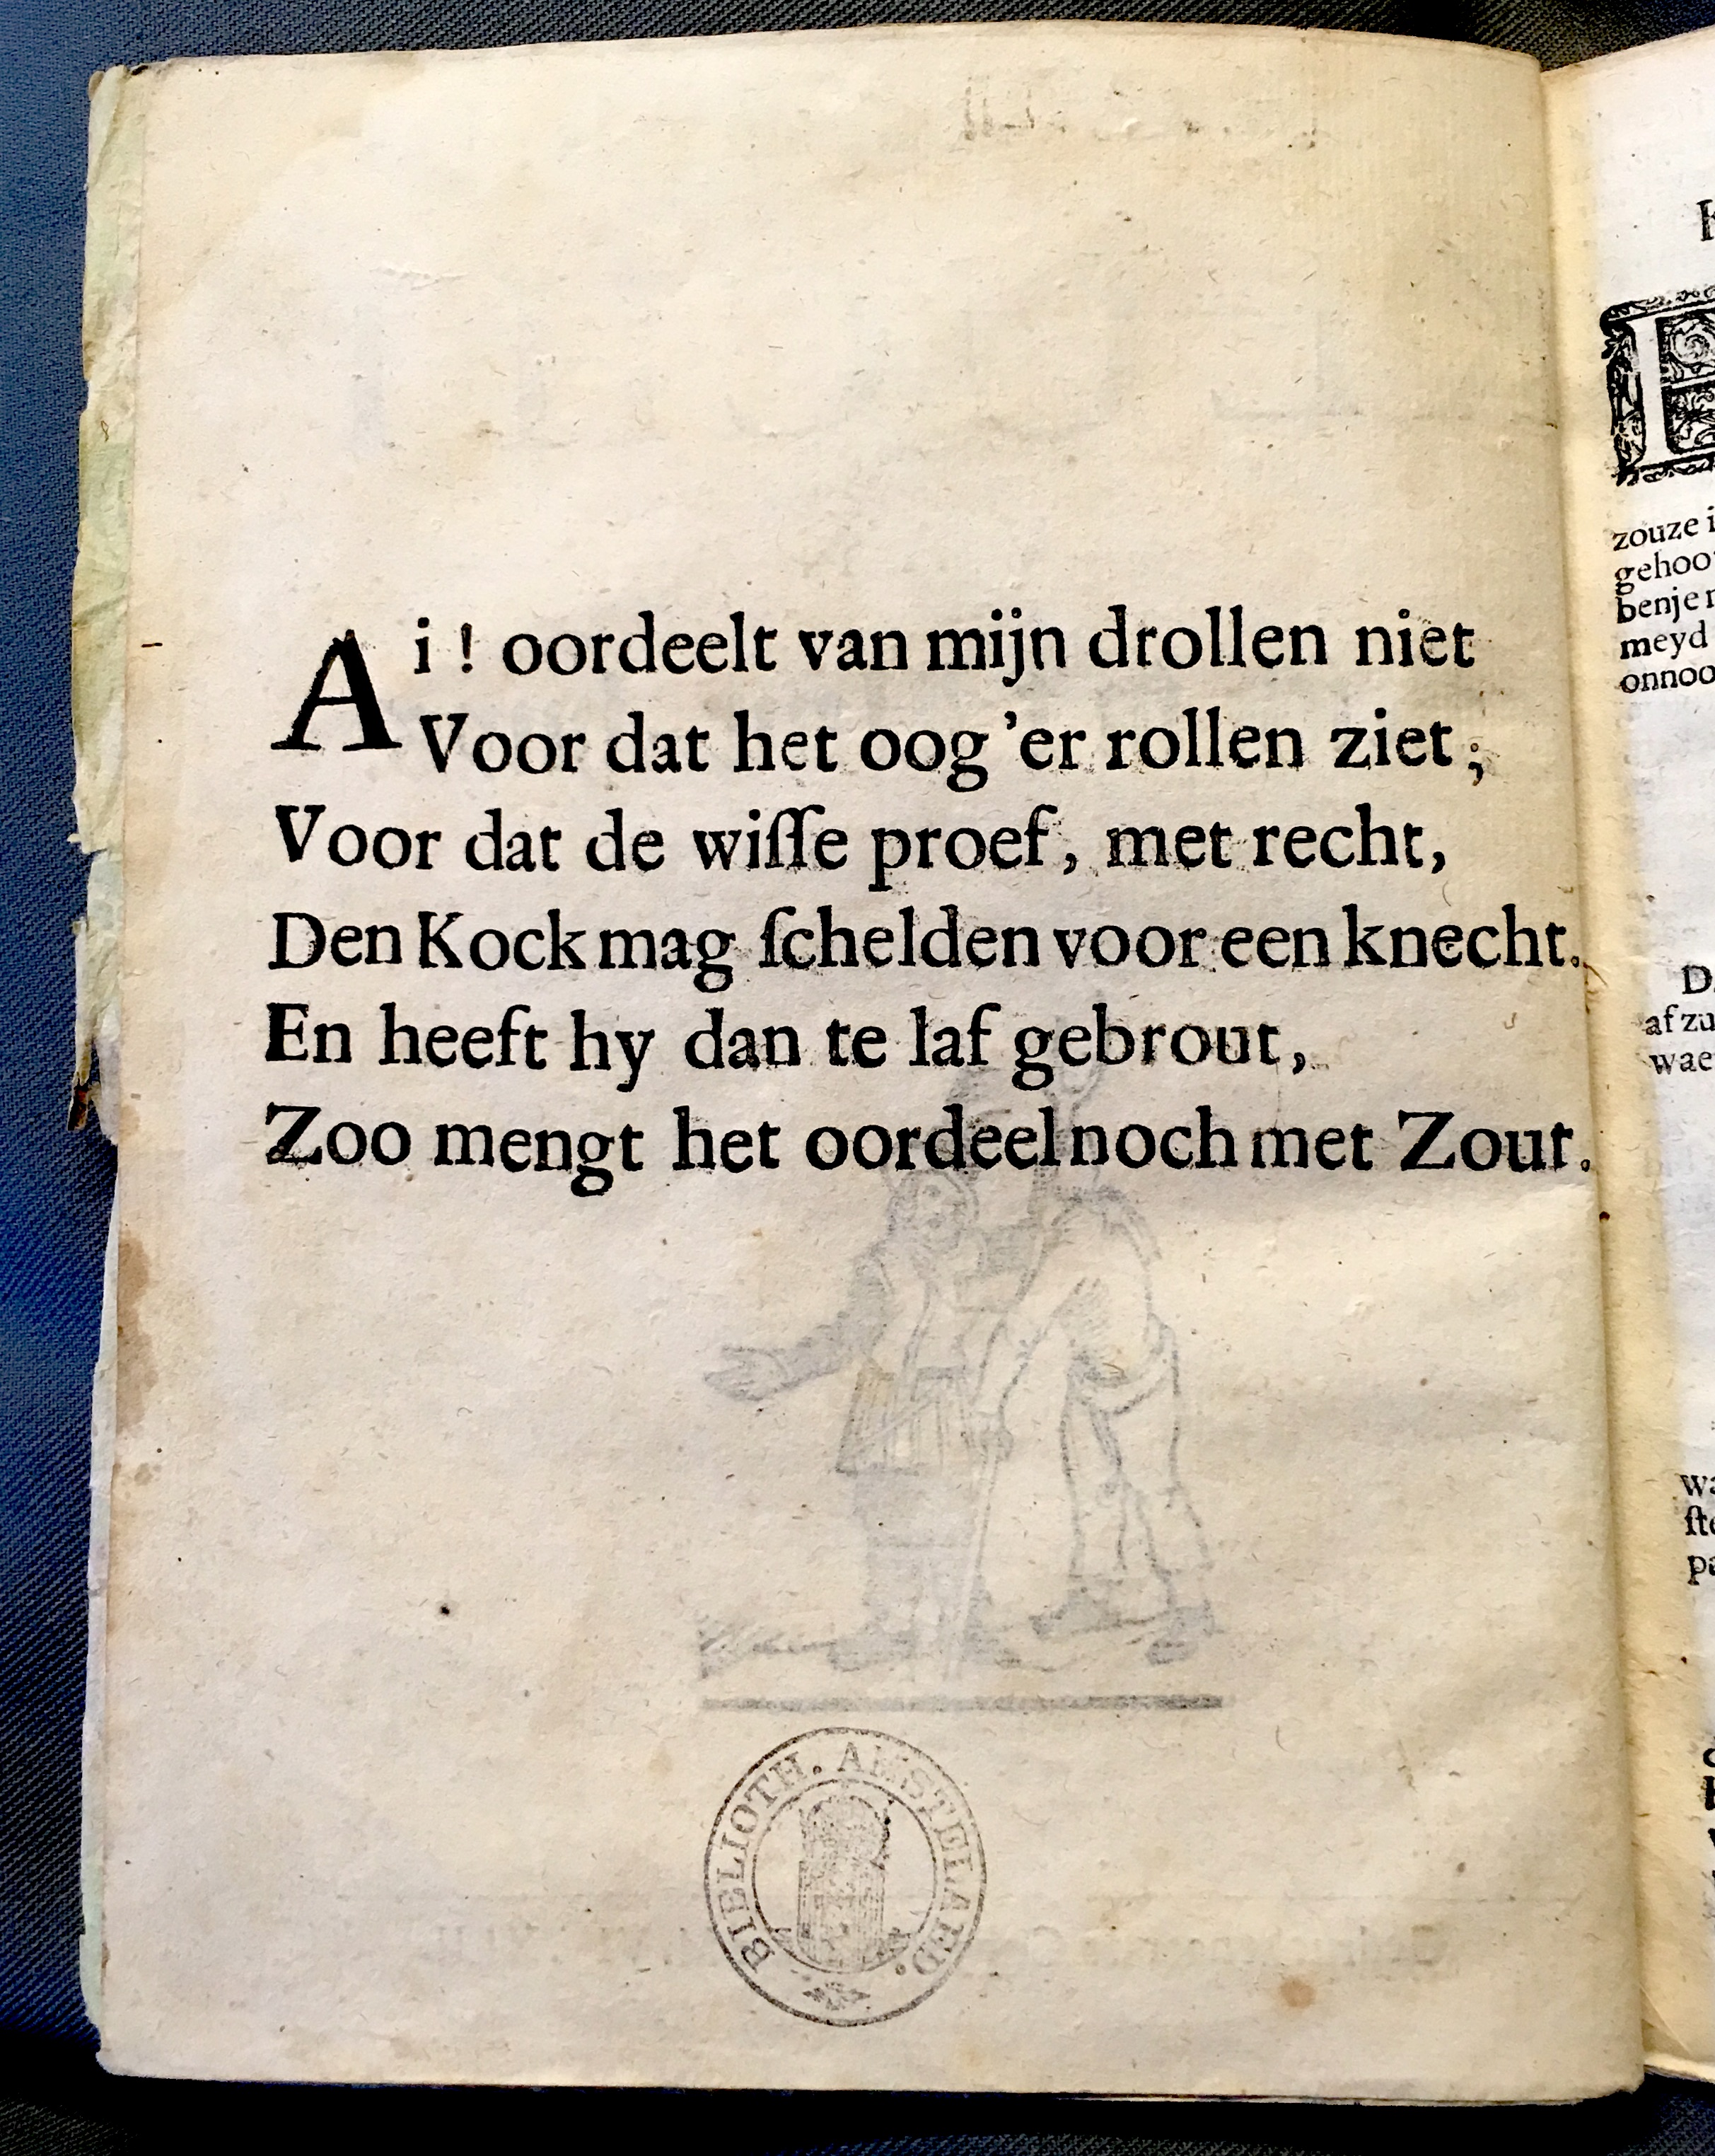 Ai! oordeelt van mijn drollen niet
Voor dat het oog 'er rollen ziet;
Voor dat de wiſſe proef, met recht,
Den Kock mag ſchelden voor een knecht.
En heeft hy dan te laf gebrout,
Zoo mengt het oordeel noch met Zout.
BIBLIOTH. AMSTELAED.
zouze i
gehoo
benje
meyd
onnoo
D
af zu
wae
wa
ſte
pa